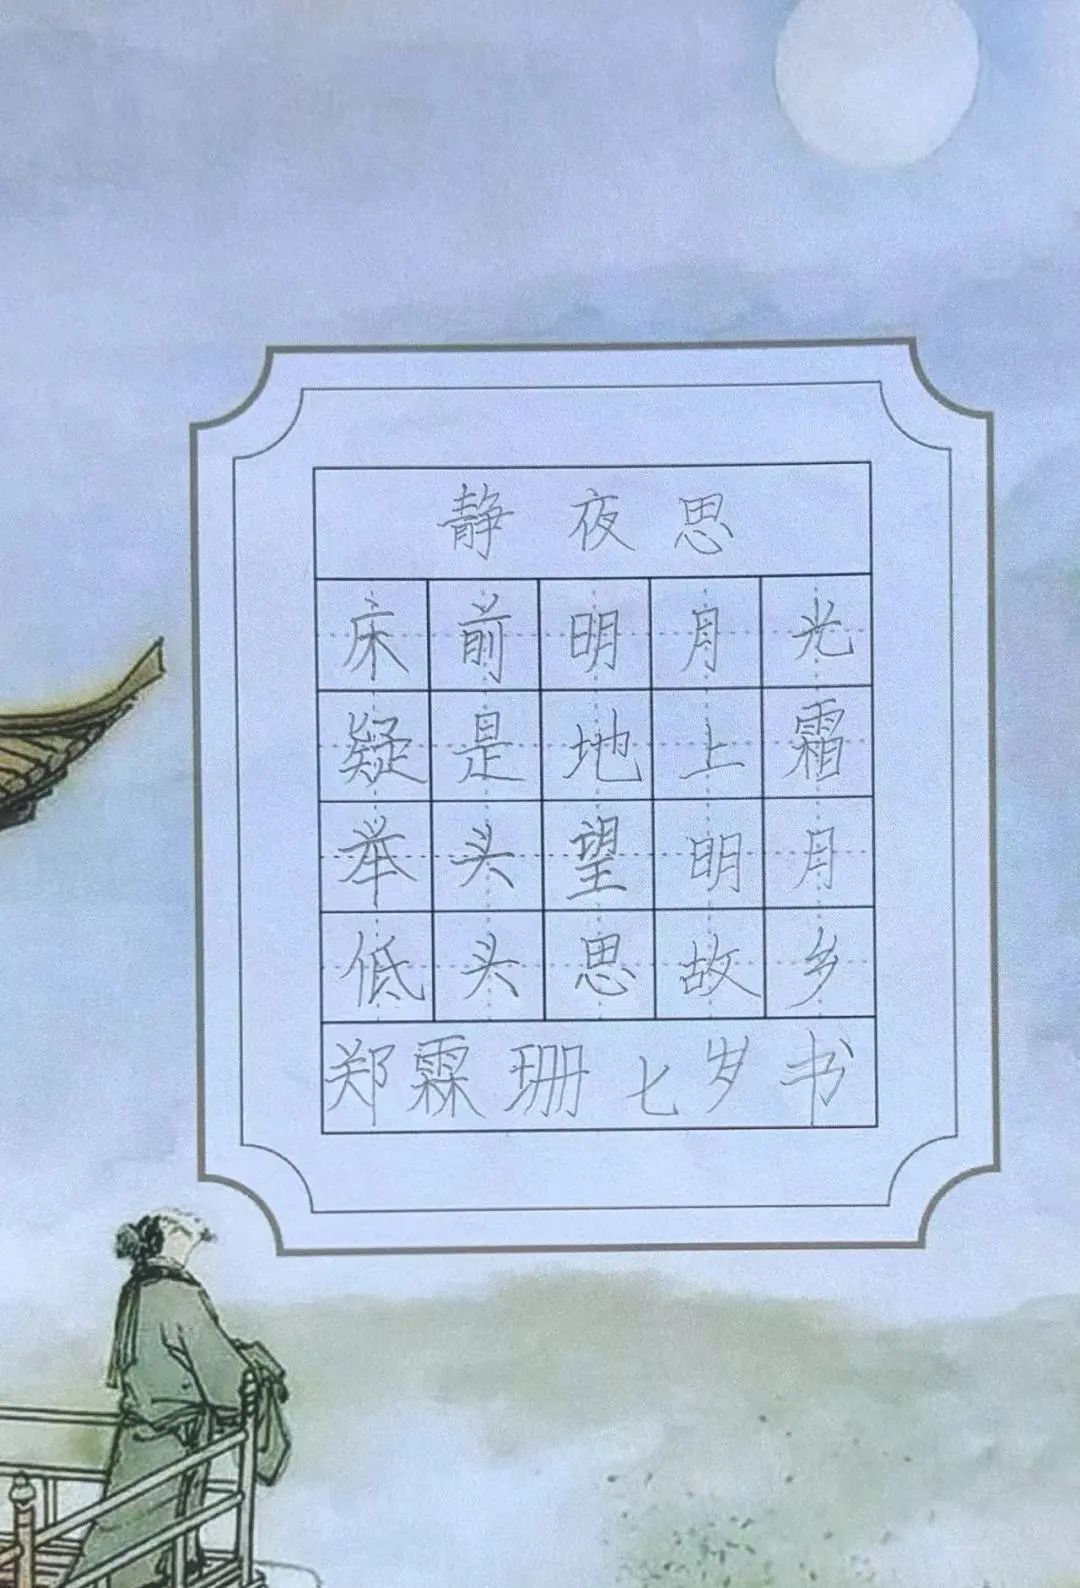 静夜思
床前明月光
疑是地上霜
举头望明月
低头思故乡
郑霖珊七岁书